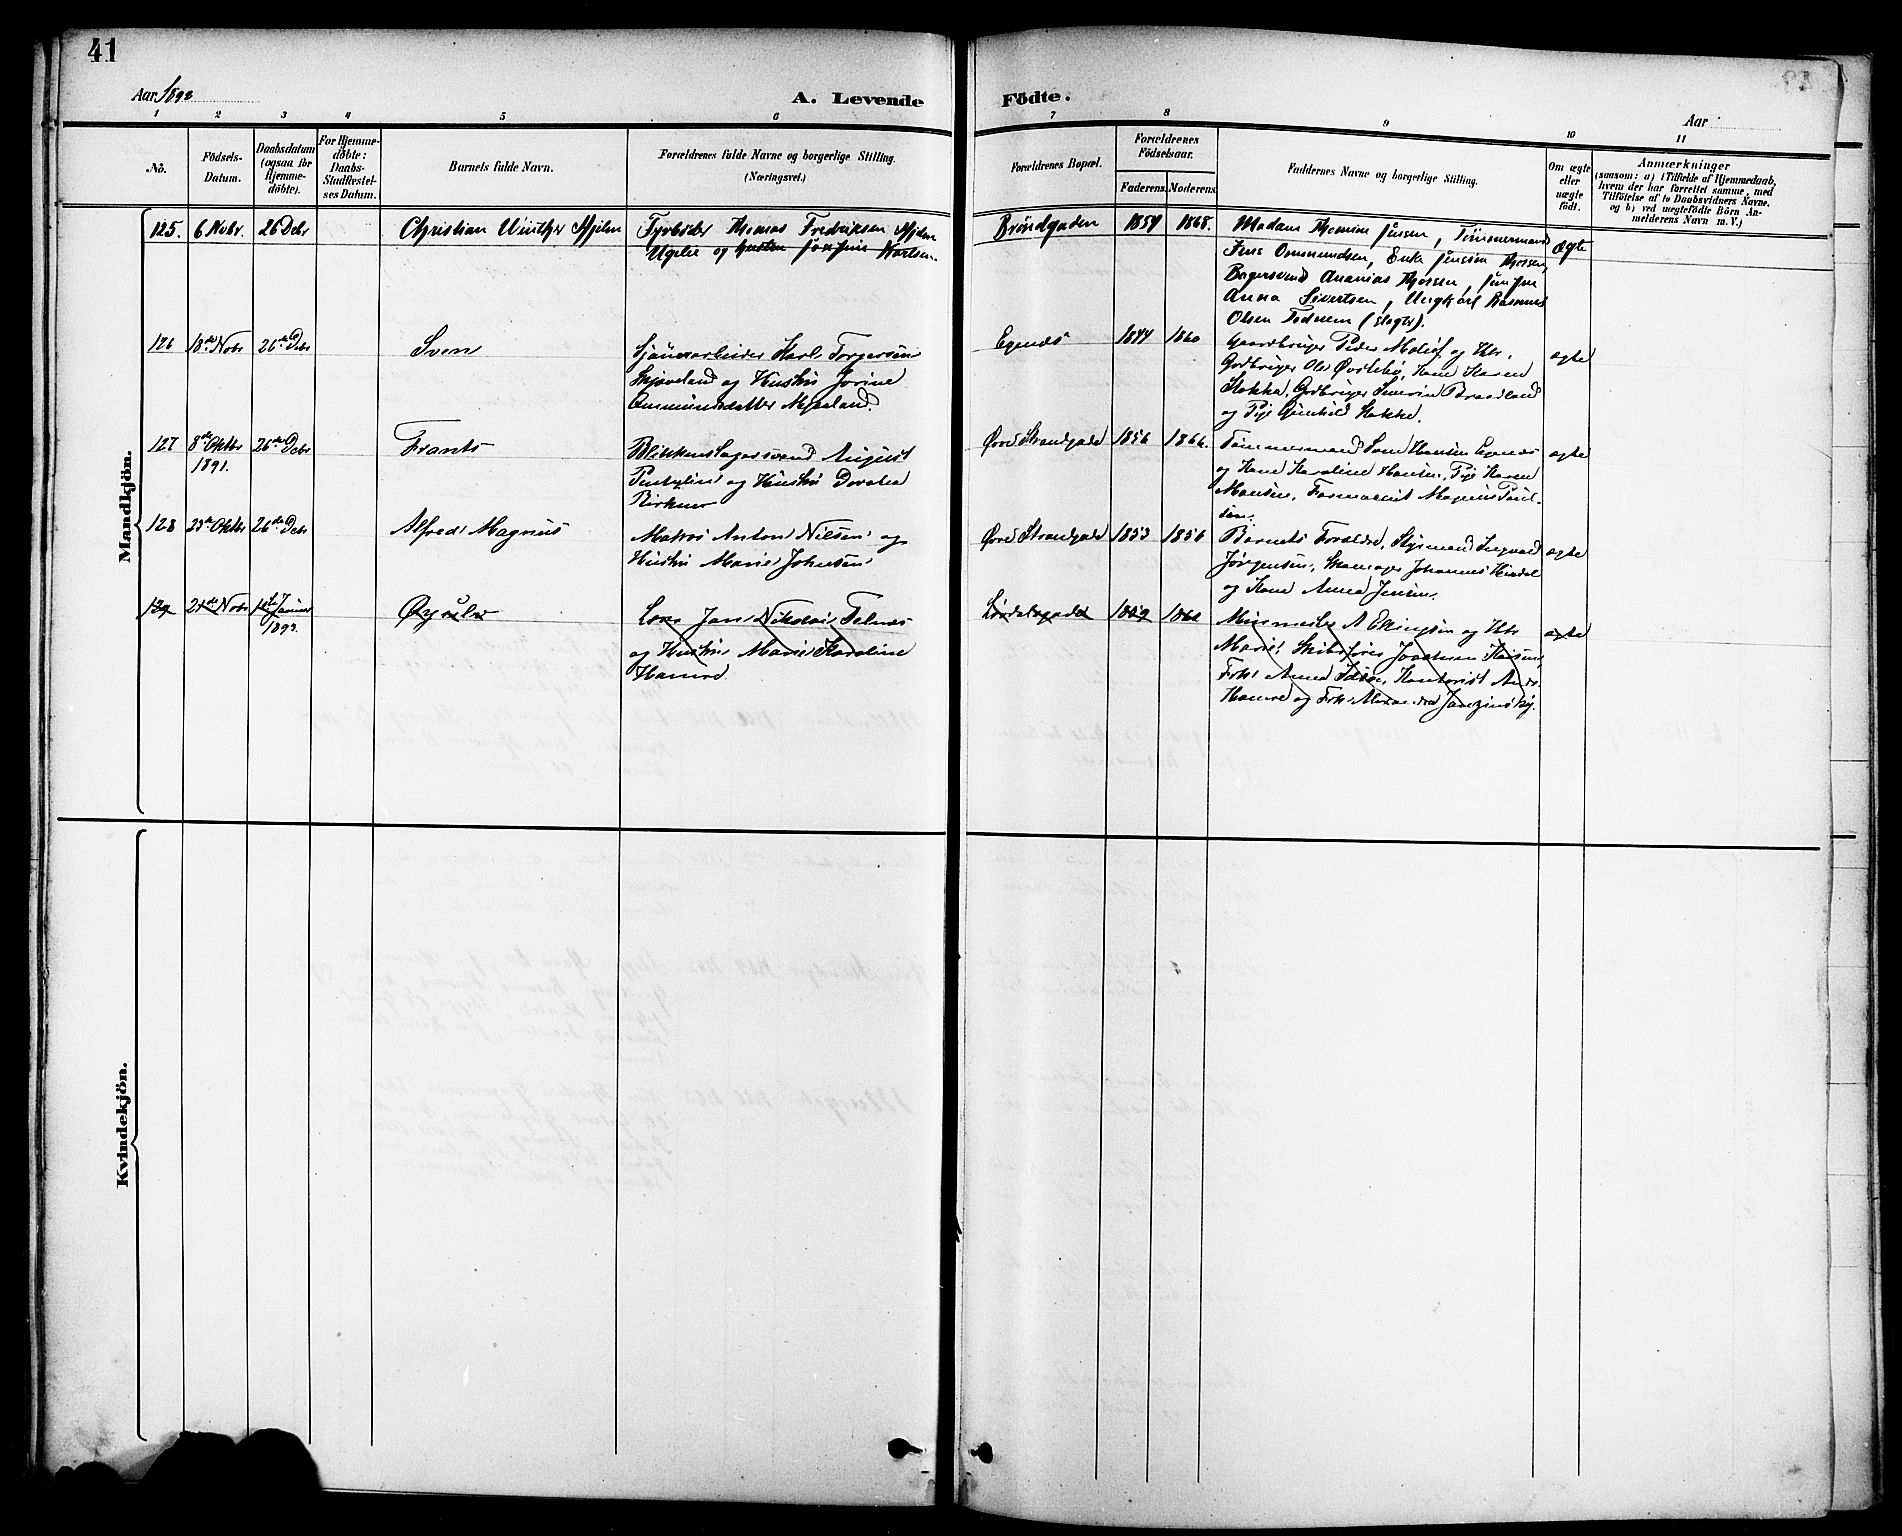 41
Aar 1892
A. Levende Födte.
Aar
1 2 3 4 5 6 7 8 9 10 11
No.
Födsels-
Datum.
Daabsdatum
(ogsaa for
Hjemme-
döbte).
For Hjemme-
döbte:
Daabs-
Stadfæstel-
ses Datum.
Barnets fulde Navn.
Forældrenes fulde Navne og borgerlige Stilling.
(Næringsvei.)
Forældrenes Bopæl.
Forældrenes
Födselsaar.
Faderens. Moderens.
Faddernes Navne og borgerlige Stilling.
Om ægte
eller
uægte
födt.
Anmærkninger
(saasom: a) i Tilfælde af Hjemmedaab,
hvem der har forrettet samme, med
Tilföielse af to Daabsvidners Navne.
og b) ved uægtefödte Börn An-
melderens Navn m. V.)
Mandkjön.
125. 6 Nobr. 26 Debr
Christian Winther Hjelm
Fyrböder Thomas Fredriksen Hjelm
Ugelie og Hustru Josefine Karlsen.
Bröndgaden 1854 1868.
Madam Thomine Jensen, Tömmermand
Jens Ommundsen, Enke Jensine Thorsen,
Bagersvend Ananias Thorsen,
Anna Sivertsen, Ungkarl Rasmus
Olsen Todnem (Slagter).
Ægte
126 18de Nobr 26de Debr
Sven
Sjöuerarbeider Karl Torgersen
Skjæveland og Hustru Jorine
Ommundsdatter Mjaaland.
Egenæs 1844 1860
Gaardbruger Peder Malöf og Htr.
Grdbruger Ole Övrebö, Kone Karen
Stokka, Grdbruger Severin Braadland
og Pige Gunhild Stokke.
ægte
127 8de Oktbr 26de Debr
1891.
Frants
Blikkenslagersvend August
og Hustru Dorthea
Birkner
Övre Strandgade 1856 1866.
Tömmermand Hansen Egenæs
og Kone Karoline Hansen, Pige Karen
Hansen, Farmaceut Magnus Paul-
sen.
ægte
128 23de Oktbr 26de Debr
Alfred Magnus
Matros Anton Nilsen og
Hustru Marie Johnsen
Övre Strandgade 1853 1856
Barnets Forældre, Styrmand Ingvald
Jörgensen, Skomager Johannes Hindal
og Kone Anna Jensen.
ægte
129 21de Nobr 1ste Januar
1893.
Öyulv
Lods Jan Nikolai Telnæs
og Hustru Marie Karoline
Hamre
Lördalsgade 1859 1862
Minemester A Ellingsen og Htr
Marie, Skibsförer Joachim
Frk. Anna, Kontorist Andr.
Hamre og Frk. Alexandra
ægte
Kvindekjön.